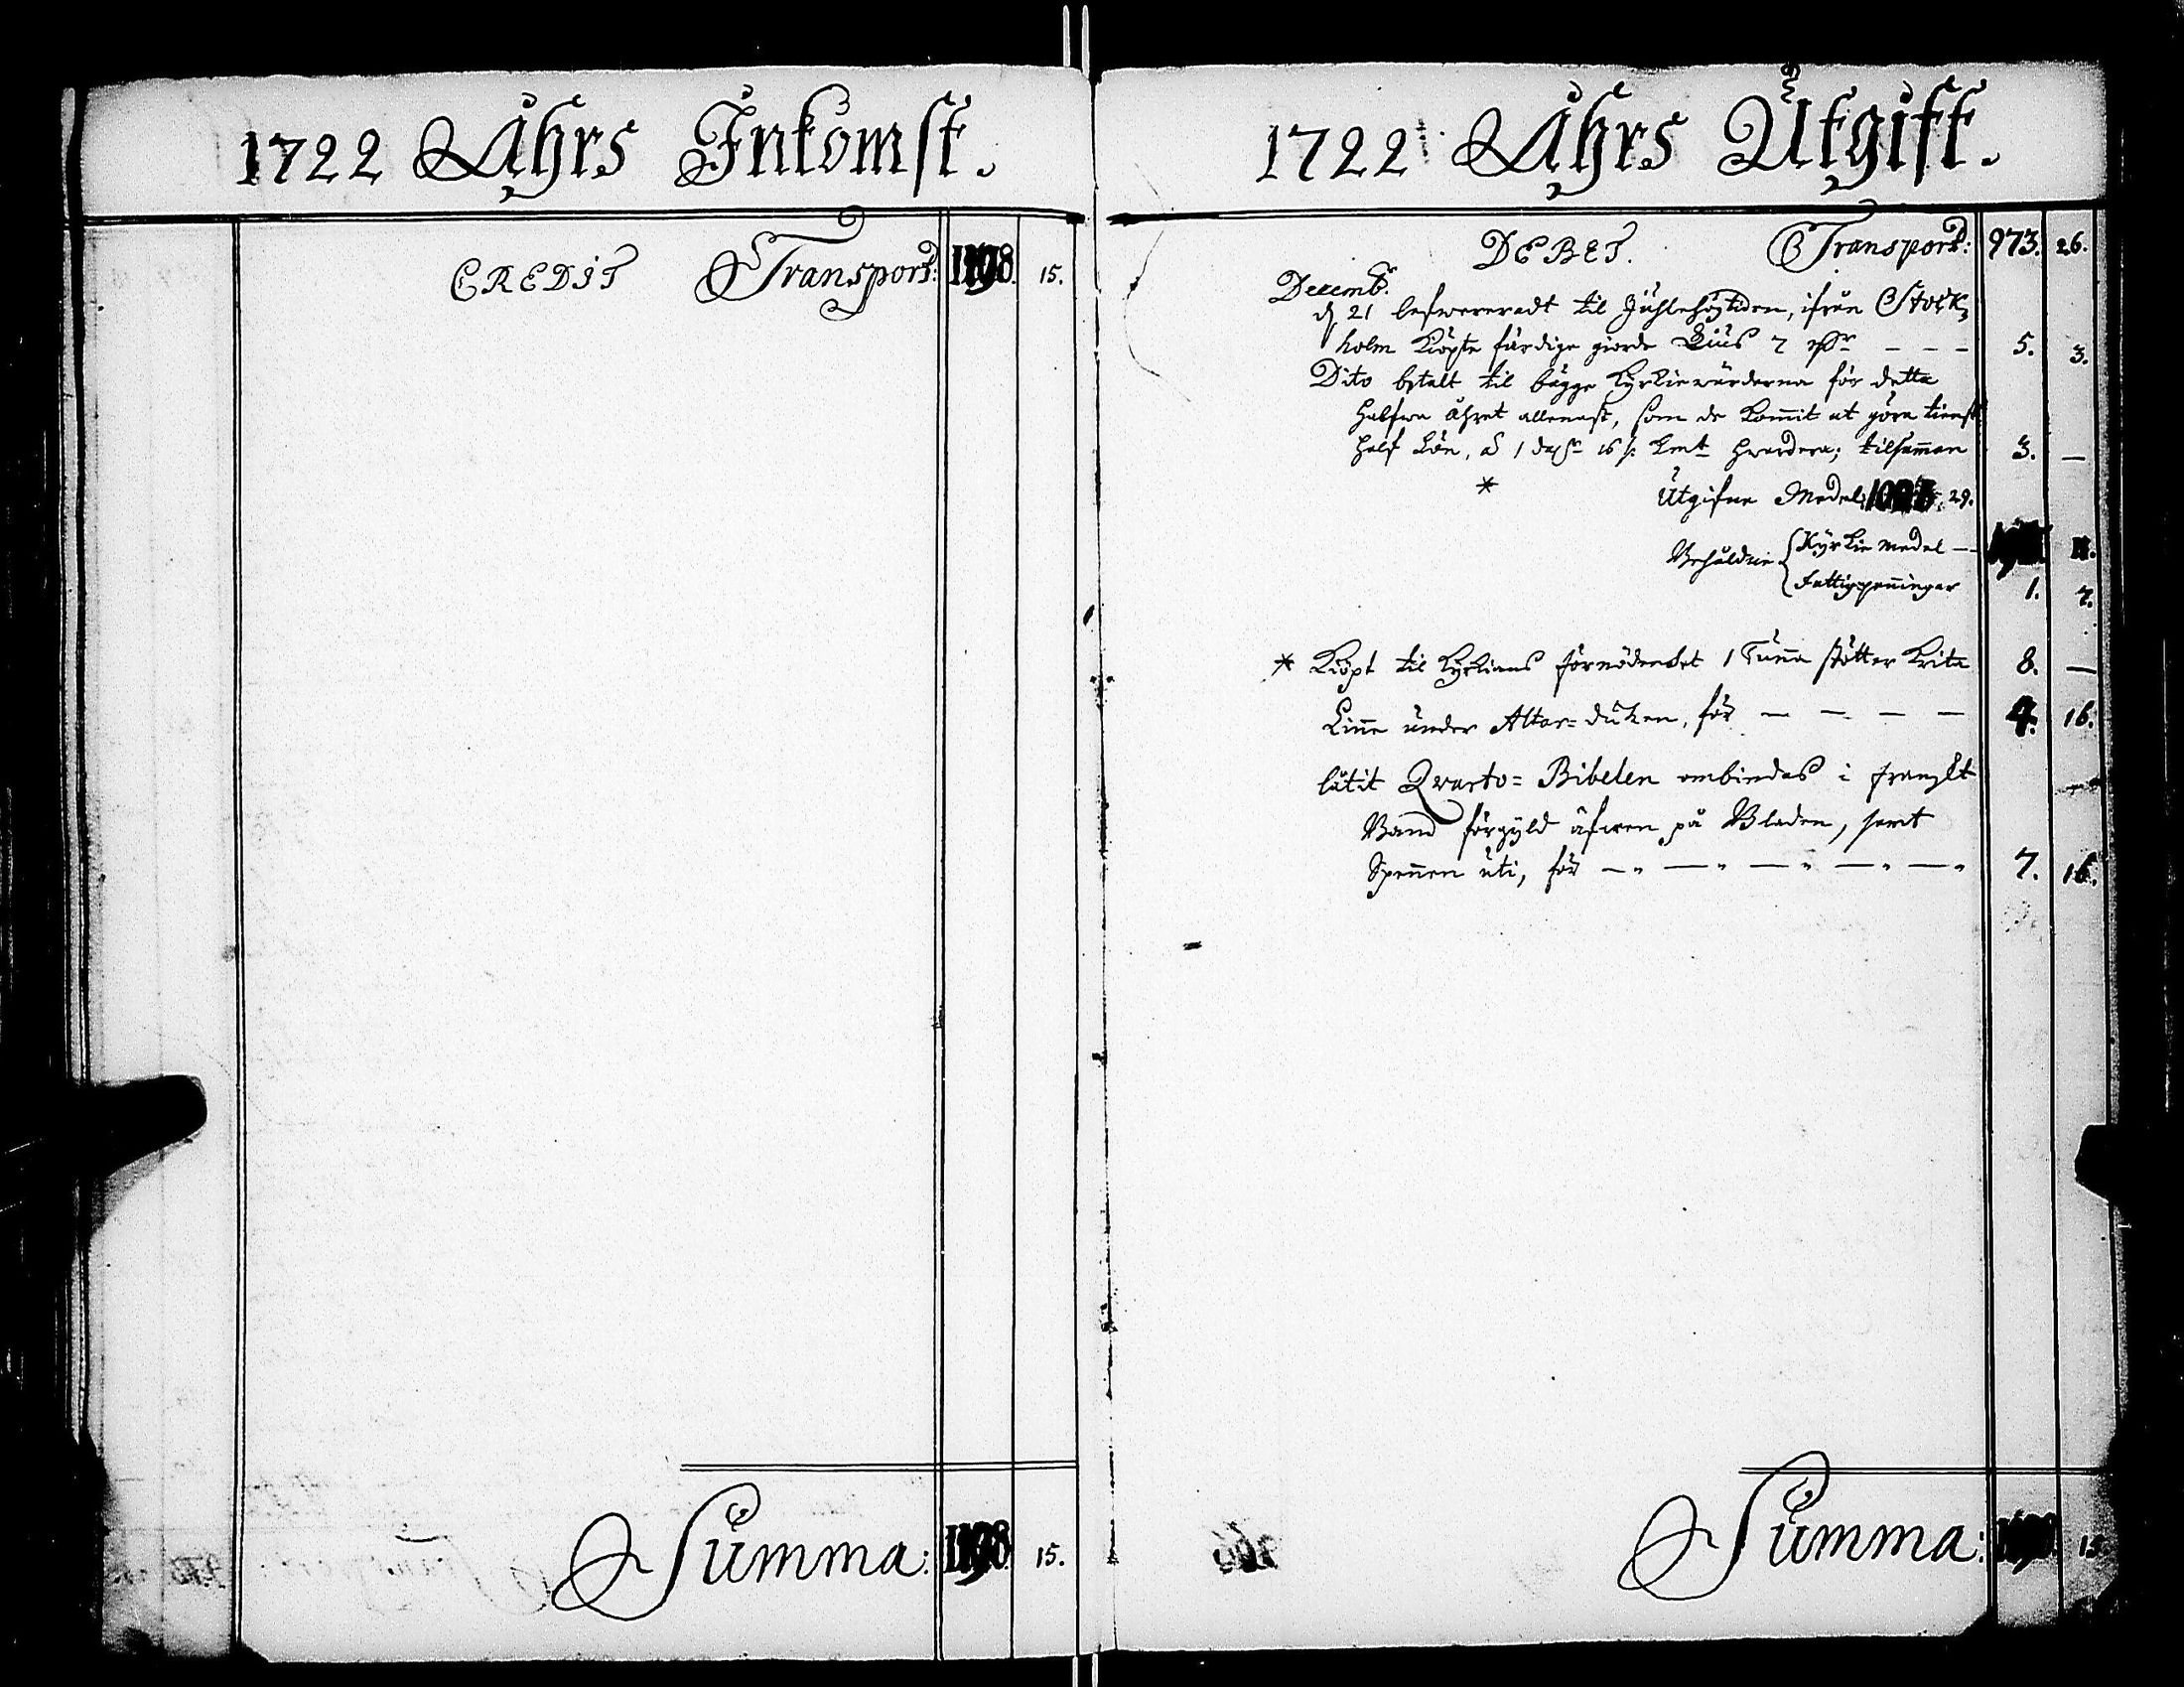 1722 Åhrs Inkomst.
CREDIT Transport: 1198. 15.
Summa: 1198. 15.
1722 Åhrs Utgift.
DEBET. Transport: 973. 26.
Decembr.
d 21 lefwereradt til Juhlehögtiden, ifrån Stock-
holm Kiöpte färdige giorde Liús 7 - - - 5. 3.
Dito betalt til bägge Kyrkiewärderna för detta
halfwa åhret allenast, som de kommit at göra tienst
half Lön, á 1 dahlr 16 /: kmt hwardera; tilsamman 3. —
* Utgifne Medel: 29.
Behåldne Kyrkie medel — 11.
Fattigpenningar 1. 7.
* Kiöpt til Kyrkians förnödenhet 1 Tunna stötter krita 8. —
Linne under Altar-duken, för — — — — 4. 16.
låtit Qvarto-Bibelen ombindas i franskt
Band förgyld äfwen på Bladen, samt
Spennen uti, för — — — — — 7. 16.
Summa: 15